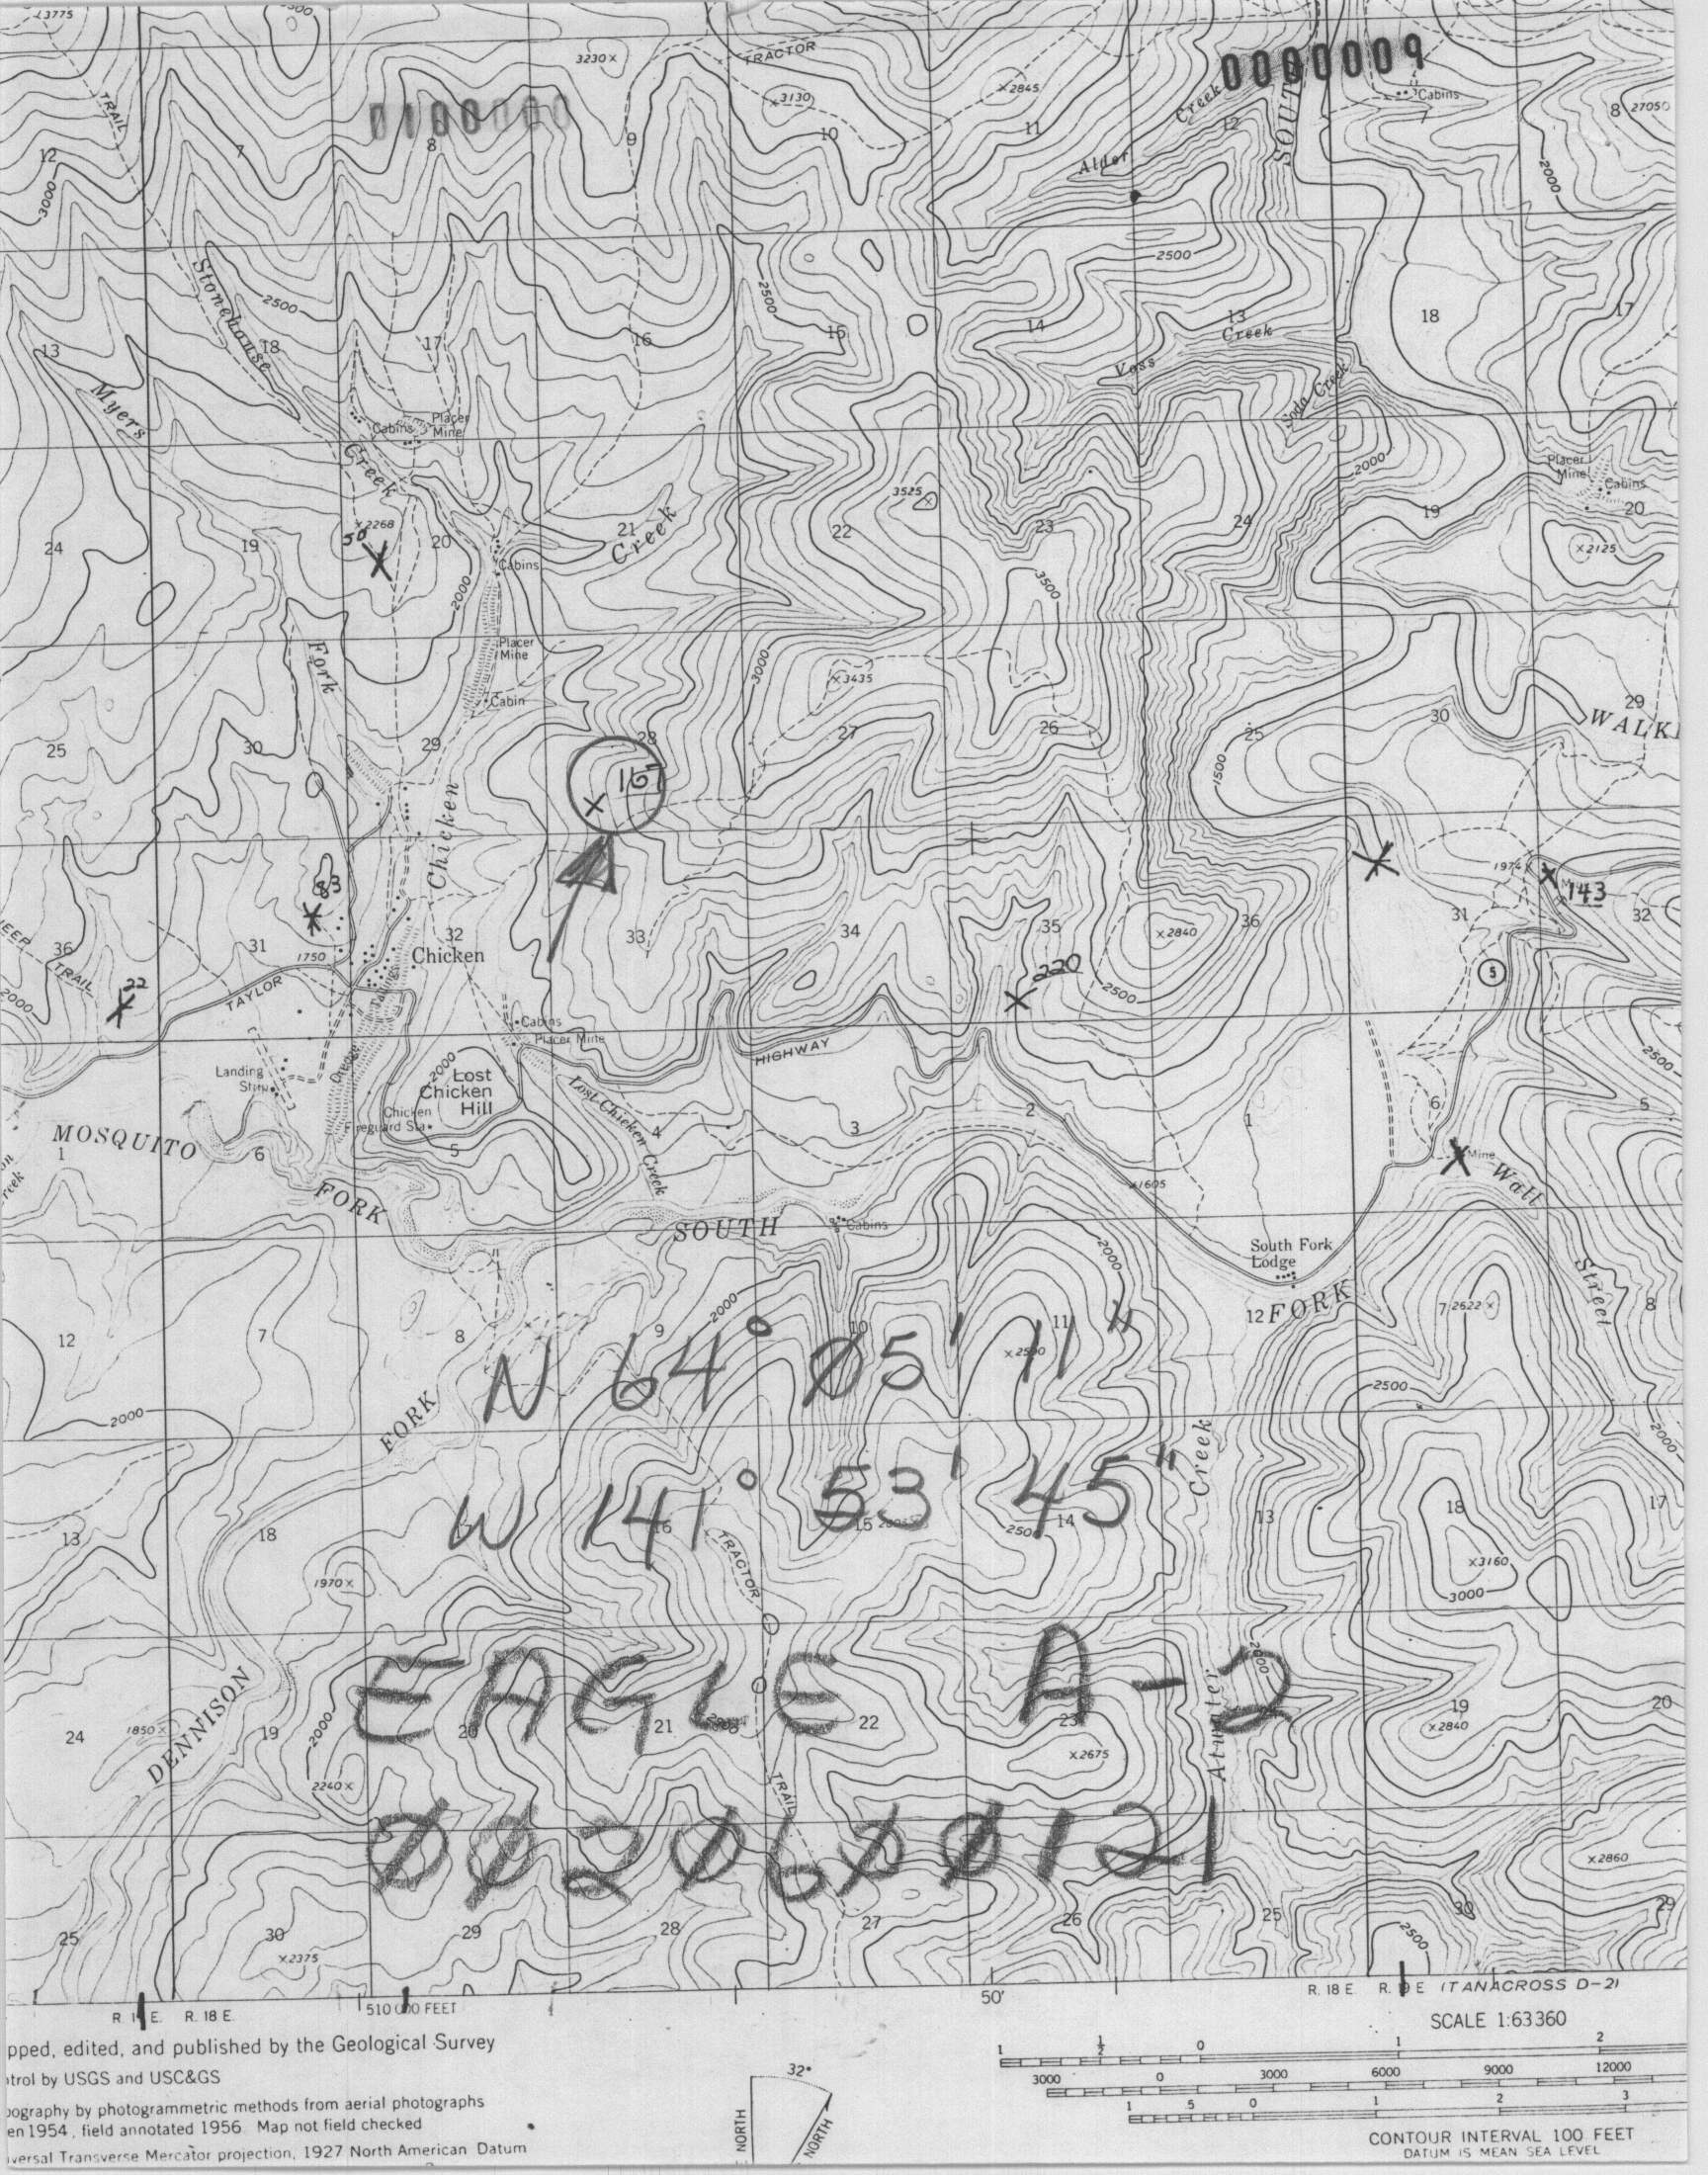 3775
3230
TRACTOR
3130
2845
Creek
0000009
SOUTH
Cabins
7
8
2705
TRAIL
12
7
8
9
10
11
12
3000
Alder
2000
Stonehouse
2500
2500
2500
13
18
17
16
15
14
13
Creek
18
17
Myers
Voss
Soda Creek
Cabins
Placer
Mine
Creek
2000
Placer
Mine
Cabins
2268
50
3525
24
19
20
21
Creek
22
23
24
19
20
2125
Cabins
2000
3500
Fork
Placer
Mine
3000
3435
Cabin
29
WALK
25
30
29
28
27
26
25
30
1500
167
Chicken
83
1974
143
36
31
32
33
34
35
36
31
32
2840
Chicken
1750
JEEP TRAIL
2000
22
220
2500
5
TAYLOR
Tailings
Cabins
Placer Mine
HIGHWAY
2500
Landing
Strip
Dredge
2000
Lost
Chicken
Hill
Lost Chicken Creek
Chicken
Fireguard Sta
MOSQUITO
1
6
5
4
3
2
1
6
5
Mine
Wall
FORK
1605
SOUTH
Cabins
South Fork
Lodge
2000
Street
12
7
8
9
10
11
12
FORK
7
2622
8
2000
N 64° 05' 11"
2500
2500
2000
FORK
2000
Creek
W 141° 53' 45"
13
18
16
15
14
13
18
17
2500
1970
TRACTOR
3160
3000
EAGLE A-2
2000
DENNISON
24
1850
19
2000
20
21
22
23
19
2840
20
2675
Atwater
2240
TRAIL
0020600121
2860
25
30
29
28
27
26
25
30
29
2375
2500
50'
R. 18 E.
510 000 FEET
R. 18 E.
(TANACROSS D-2)
SCALE 1:63360
pped, edited, and published by the Geological Survey
trol by USGS and USC&GS
ography by photogrammetric methods from aerial photographs
en 1954, field annotated 1956 Map not field checked
versal Transverse Mercator projection, 1927 North American Datum
32°
NORTH
NORTH
1 ½ 0 1 2
3000 0 3000 6000 9000 12000
1 5 0 1 2 3
CONTOUR INTERVAL 100 FEET
DATUM IS MEAN SEA LEVEL